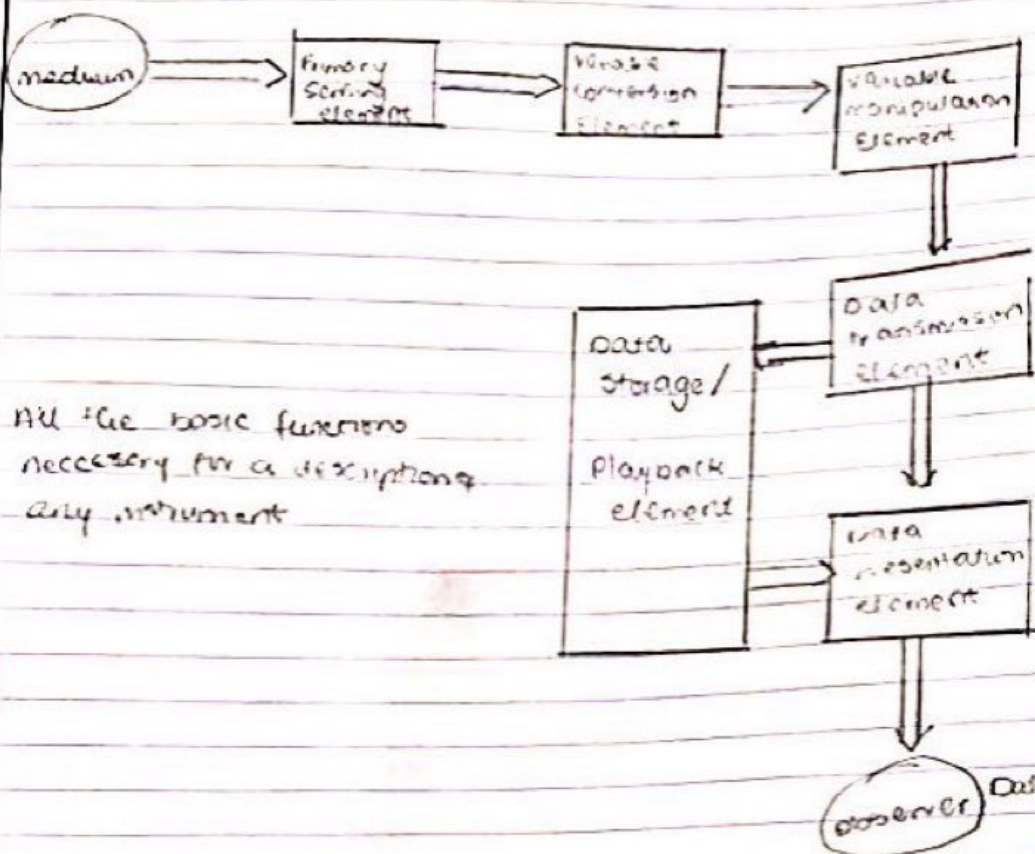 medium
Primary
Sensing
element
Variable
Conversion
Element
Variable
manipulation
Element
Data
transmission
element
Data
Storage/
Playback
element
Data
presentation
element
observer
All the basic functions
neccessary for a description of
any instrument